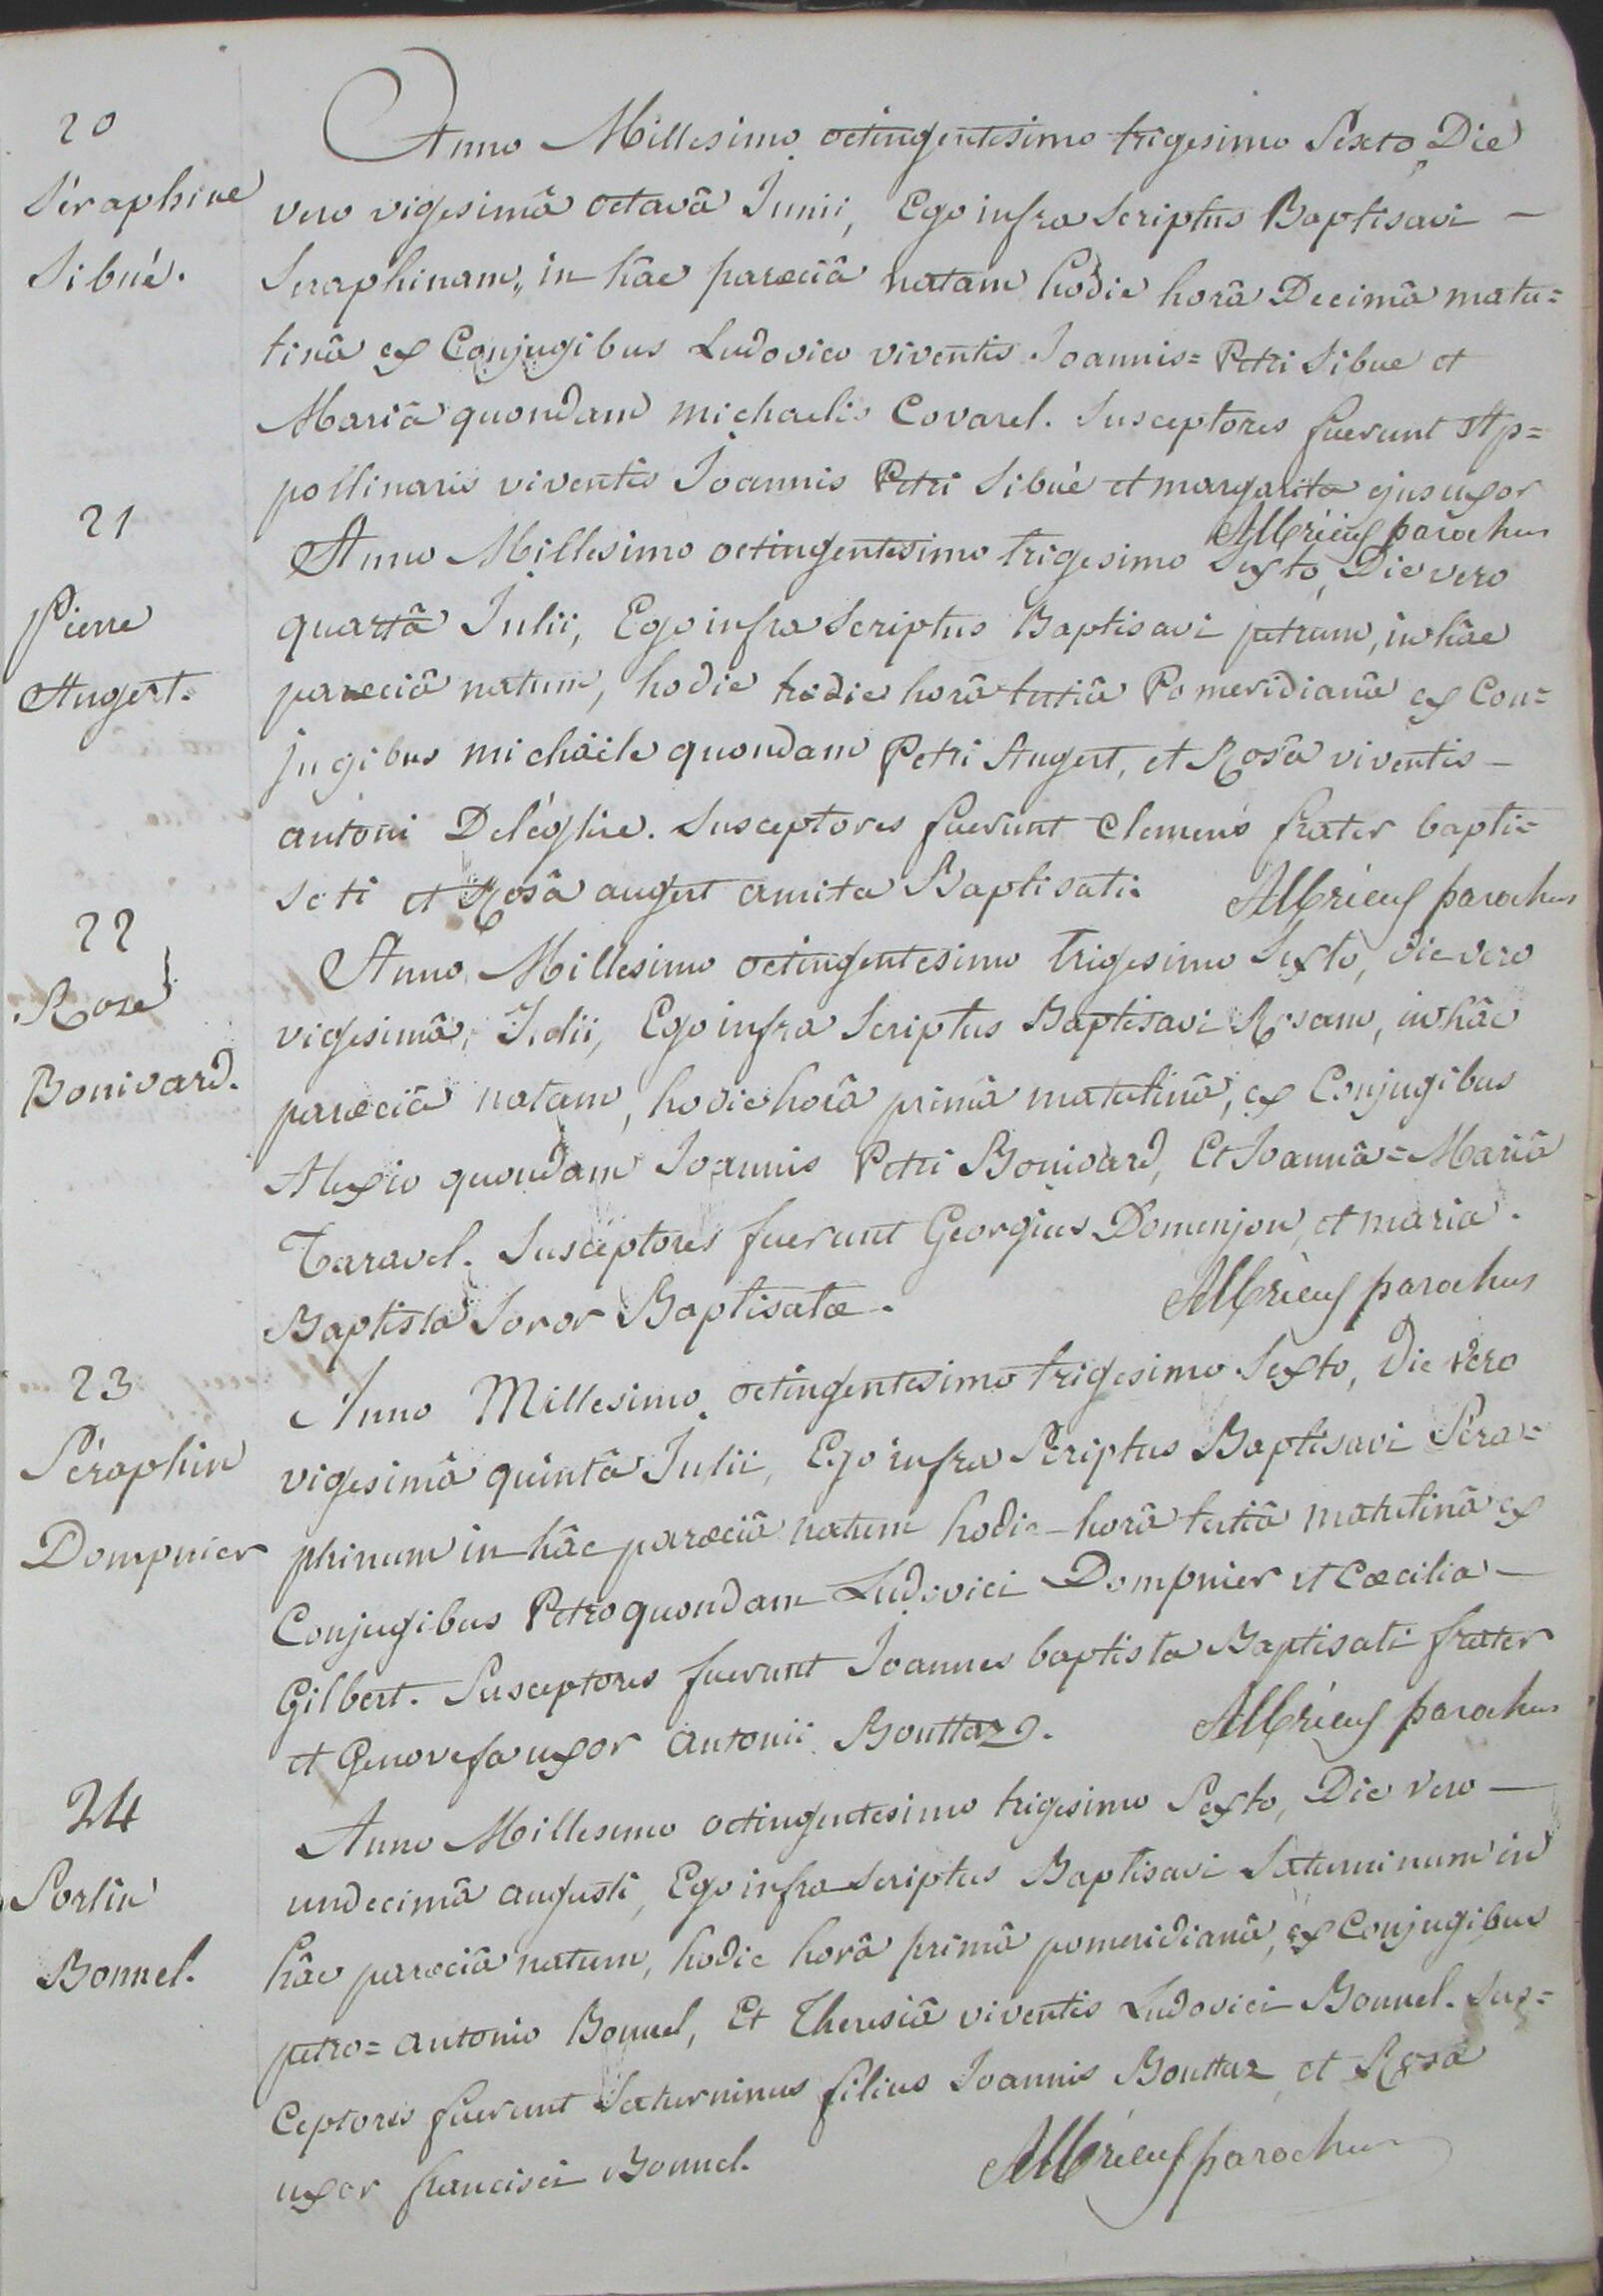 20
Séraphine
Sibué.
Anno Millesimo octingentesimo trigesimo Sexto, Die
vero vigesimâ octavâ Junii, Ego infra Scriptus Baptisavi —
Seraphinam, in hâc parœciâ natam hodie horâ Decimâ matu=
tinâ ex Conjugibus Ludovico viventis Joannis= Petri Sibue et
Mariâ quondam michaelis Covarel. Susceptores fuerunt Ap=
pollinaris viventis Joannis Petri Sibué et margarita ejus uxor
Albrieux parochus
21
Pierre
Augert.
Anno Millesimo octingentesimo trigesimo Sexto, Die vero
quartâ Julii, Ego infra Scriptus Baptisavi petrum, in hâc
parœciâ natum, hodie hodie horâ tertiâ Pomeridianâ ex Con=
jugibus michäele quondam Petri Augert, et Rosâ viventis —
antoni Deléglise. Susceptores fuerunt Clemens frater bapti=
sati et Rosâ augert amita Baptisati.
Albrieux parochus
22
Rose
Bonivard.
Anno Millesimo octingentesimo trigesimo Sexto, die vero
vigesimâ, Julii, Ego infra Scriptus Baptisavi Rosam, in hâc
parœciâ natam, hodie horâ primâ matutinâ, ex Conjugibus
Alexio quondam Joannis Petri Bonivard, Et Joannâ=Mariâ
Taravel. Susceptores fuerunt Georgius Domenjon, et maria.
Baptista Soror Baptisatæ.
Albrieux parochus
23
Séraphin
Dompnier
Anno Millesimo octingentesimo trigesimo Sexto, Die vero
vigesimâ quintâ Julii, Ego infra Scriptus Baptisavi Séra=
phinum in hâc parœciâ natum hodie horâ tertiâ matutinâ ex
Conjugibus Petro quondam Ludovici Dompnier et Cæcilia —
Gilbert. Susceptores fuerunt Joannes baptista Baptisati frater
et Genovefa uxor Antonii Bouttaz.
Albrieux parochus
24
Sorlin
Bonnel.
Anno Millesimo octingentesimo trigesimo Sexto, Die vero —
undecimâ augusti, Ego infra Scriptus Baptisavi Saturninum in
hâc parœciâ natum, hodie horâ primâ pomeridianâ, ex Conjugibus
petro= antonio Bonnel, Et Theresiâ viventis Ludovici Bonnel. Sus=
Ceptores fuerunt Saturninus filius Joannis Bouttaz et Rosa
uxor francisci Bonnel.
Albrieux parochus